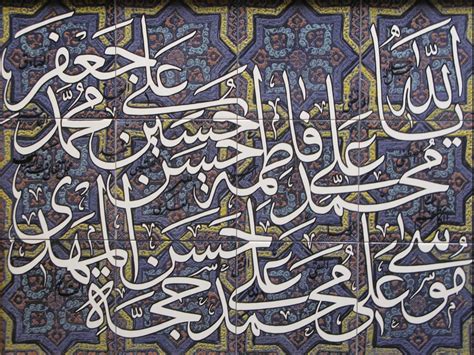 يا الله محمد علی فاطمة حسن حسین علی محمد جعفر
موسی علی محمد علی حسن حجة المهدی